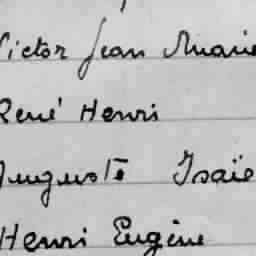 Victor Jean Marie
René Henri
Auguste Isaïe
Henri Eugène